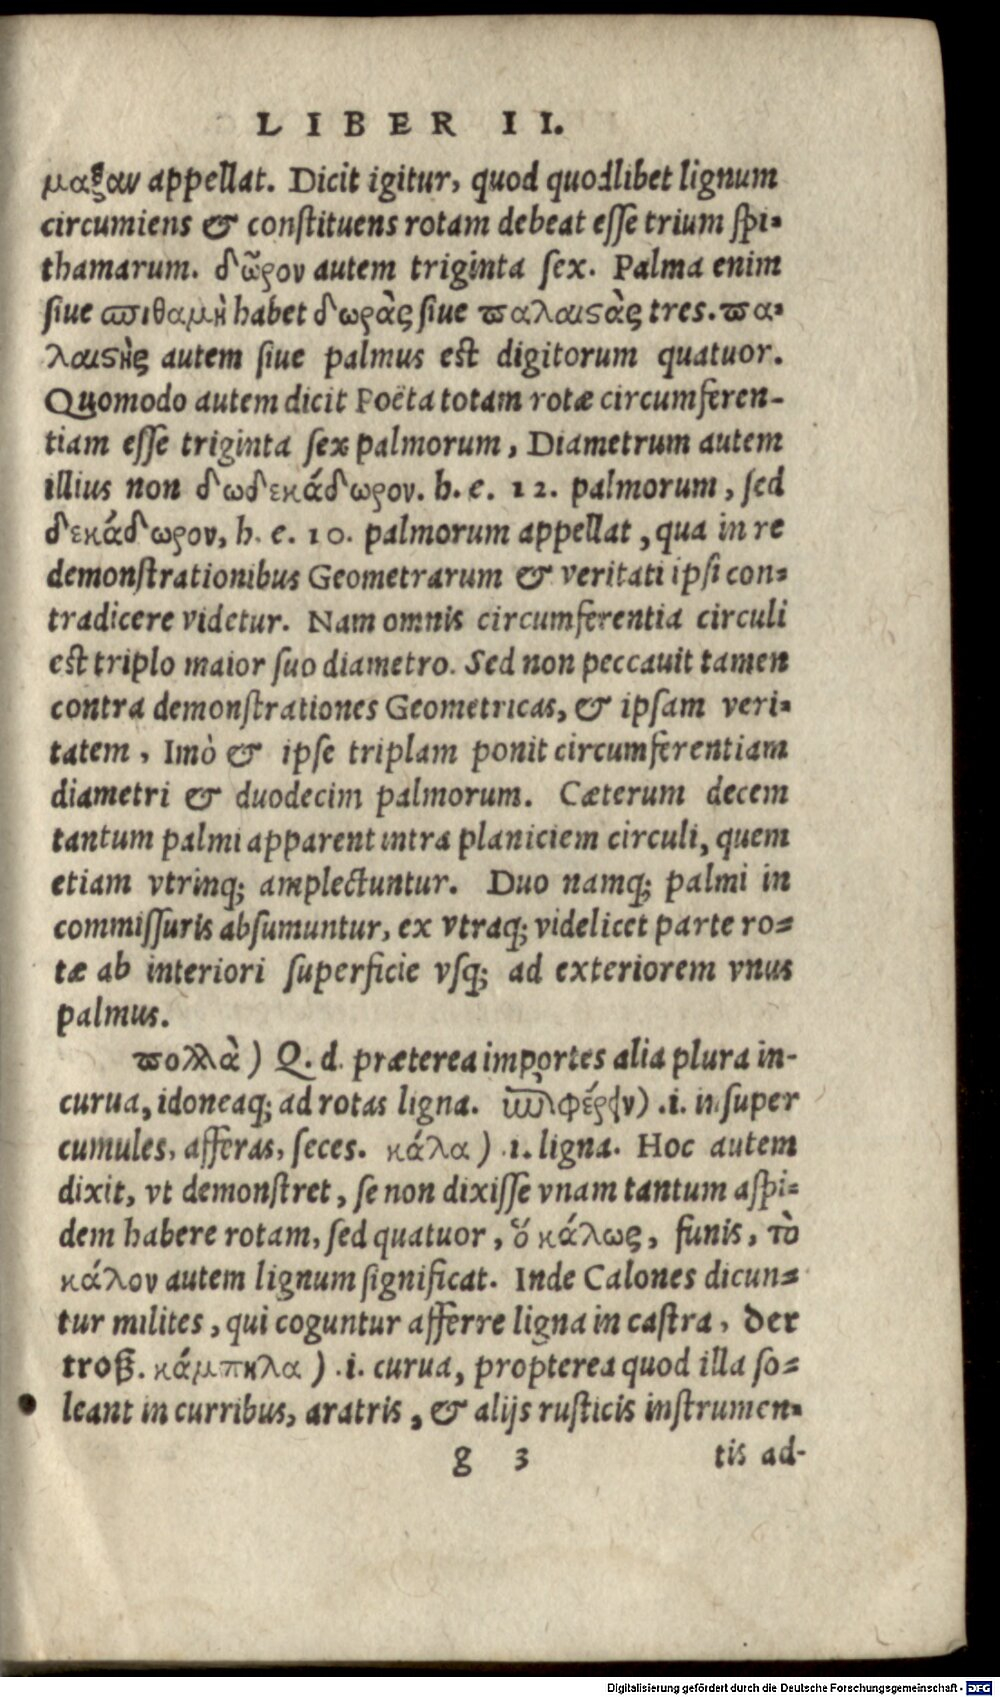 LIBER II.
μαξαν appellat. Dicit igitur, quod quodlibet lignum
circumiens & conſtituens rotam debeat eſſe trium ſpi-
thamarum. δῶρον autem triginta ſex. Palma enim
ſiue σπιθαμὴ habet δωρὰς ſiue παλαιϛὰς tres. πα-
λαιϛὴς autem ſiue palmus est digitorum quatuor.
Quomodo autem dicit Poëta totam rotæ circumferen-
tiam eſſe triginta ſex palmorum, Diametrum autem
illius non δωδεκάδωρον. h. e. 12. palmorum, ſed
δεκάδωρον, h. e. 10. palmorum appellat, qua in re
demonſtrationibus Geometrarum & veritati ipſi con-
tradicere videtur. Nam omnis circumferentia circuli
est triplo maior ſuo diametro. Sed non peccauit tamen
contra demonſtrationes Geometricas, & ipſam veri-
tatem, Imò & ipſe triplam ponit circumferentiam
diametri & duodecim palmorum. Cæterum decem
tantum palmi apparent intra planiciem circuli, quem
etiam vtrinq; amplectuntur. Duo namq; palmi in
commiſſuris abſumuntur, ex vtraq; videlicet parte ro-
tæ ab interiori ſuperficie vſq; ad exteriorem vnus
palmus.
πολλὰ) Q. d. præterea importes alia plura in-
curua, idoneaq; ad rotas ligna. .i. inſuper
cumules, afferas, ſeces. κάλα) .i. ligna. Hoc autem
dixit, vt demonſtret, ſe non dixiſſe vnam tantum aſpi-
dem habere rotam, ſed quatuor, ὅ κάλως, funis, τὸ
κάλον autem lignum ſignificat. Inde Calones dicun-
tur milites, qui coguntur afferre ligna in caſtra, Der
troß. κάμπηλα) .i. curua, propterea quod illa ſo-
leant in curribus, aratris, & alijs ruſticis inſtrumen-
g 3 tis ad-
Digitalisierung gefördert durch die Deutsche Forschungsgemeinschaft - DFG